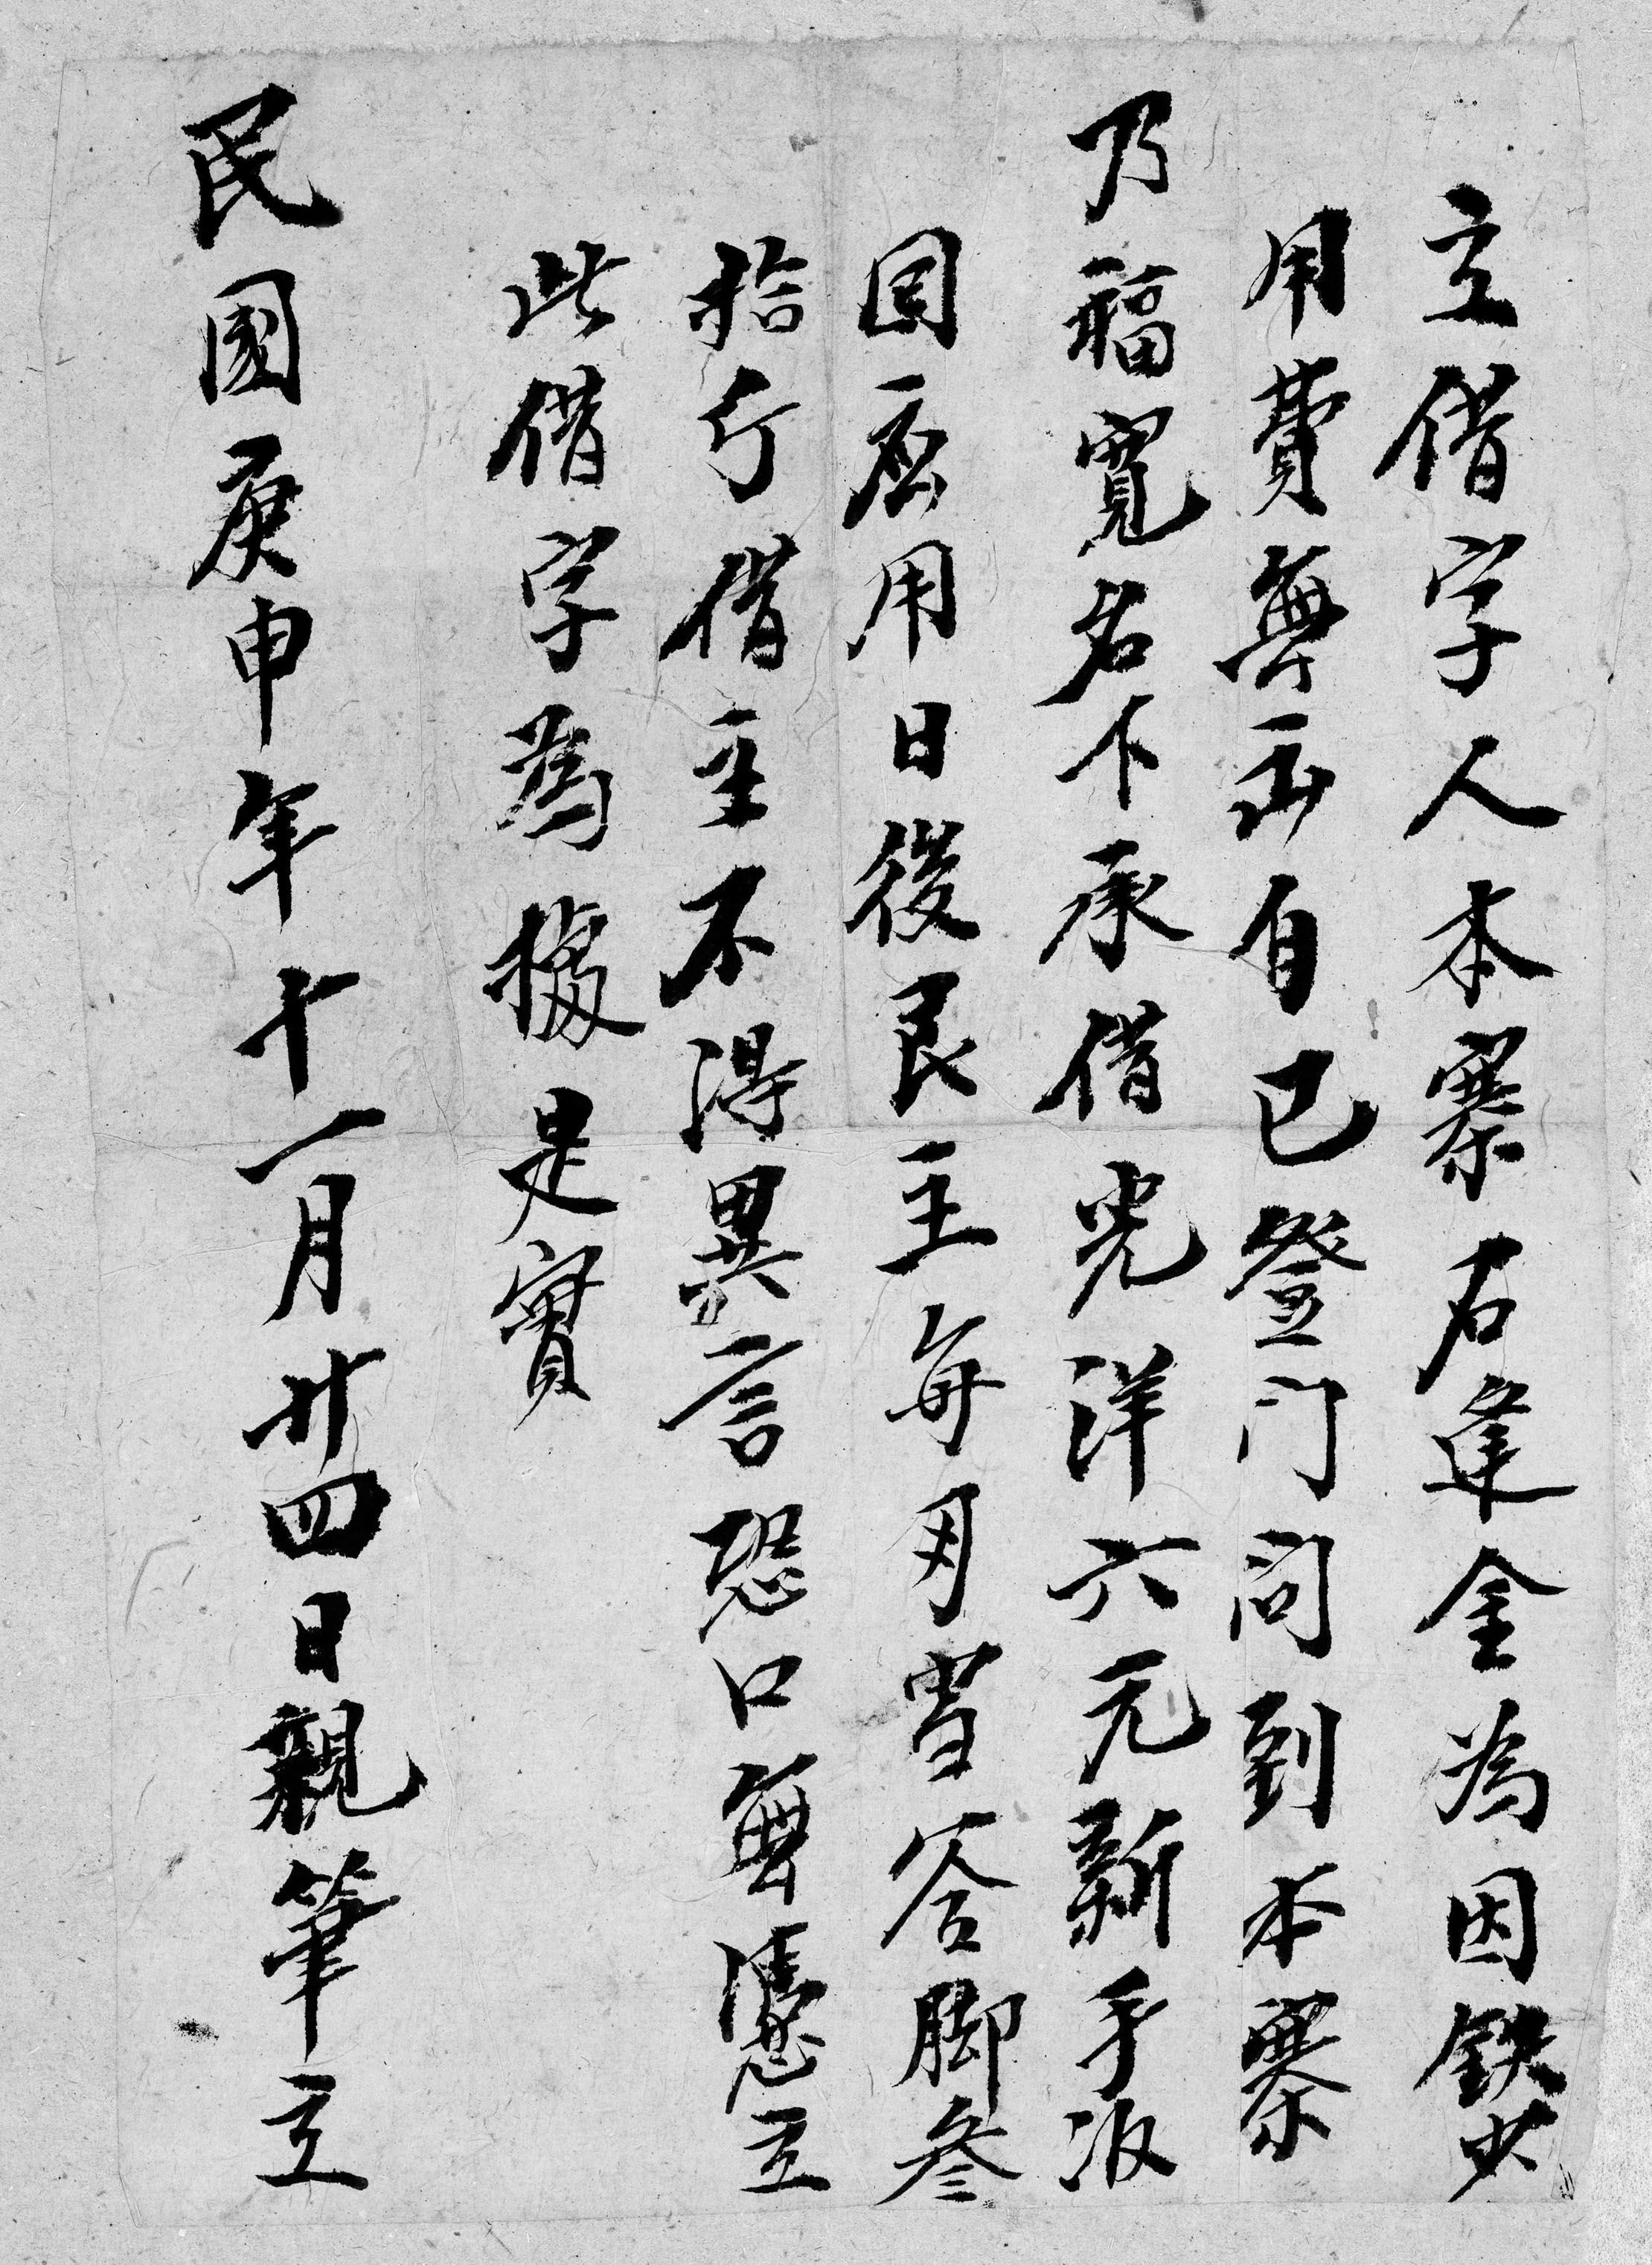 立借字人本寨石逢金為因缺少
用費無出自己登門问到本寨
乃福寬名下承借光洋六元新手收
回應用日後艮主每月當谷脚叁
拾斤借主不得異言恐口無憑立
此借字為據是實
民國庚申年十一月廿四日親筆立